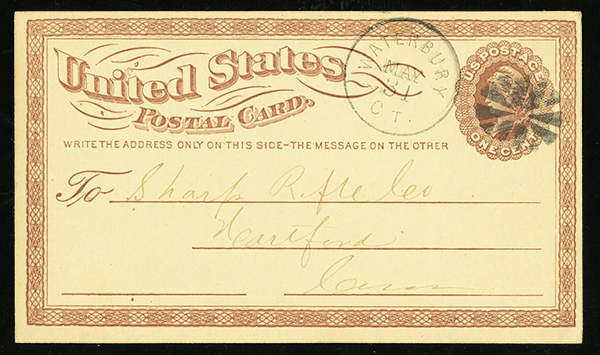 United States
POSTAL CARD.
WRITE THE ADDRESS ONLY ON THIS SIDE–THE MESSAGE ON THE OTHER
WATERBURY
MAY
31
CT.
U.S. POSTAGE
ONE CENT
To Sharp Rifle Co
Hartford
Conn